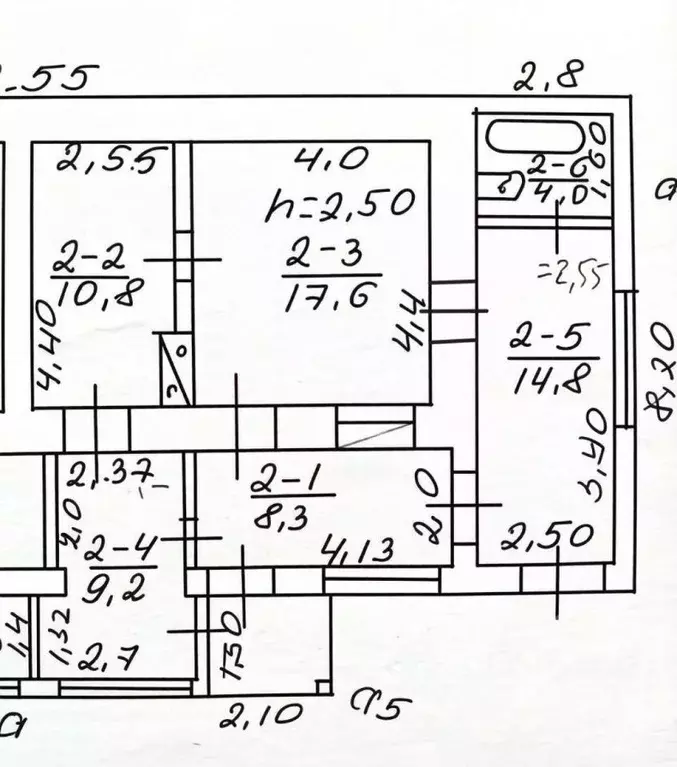 .55
2,8
2,55
4,0
h=2,50
2-2
10,8
2-3
17,6
2-6
4,0
1,60
=2,55
4,40
4,4
2-5
14,8
8,20
2,37
2-1
8,3
2,0
2,0
2-4
9,2
4,13
2,50
1,4
1,32
2,7
1,50
2,10
а